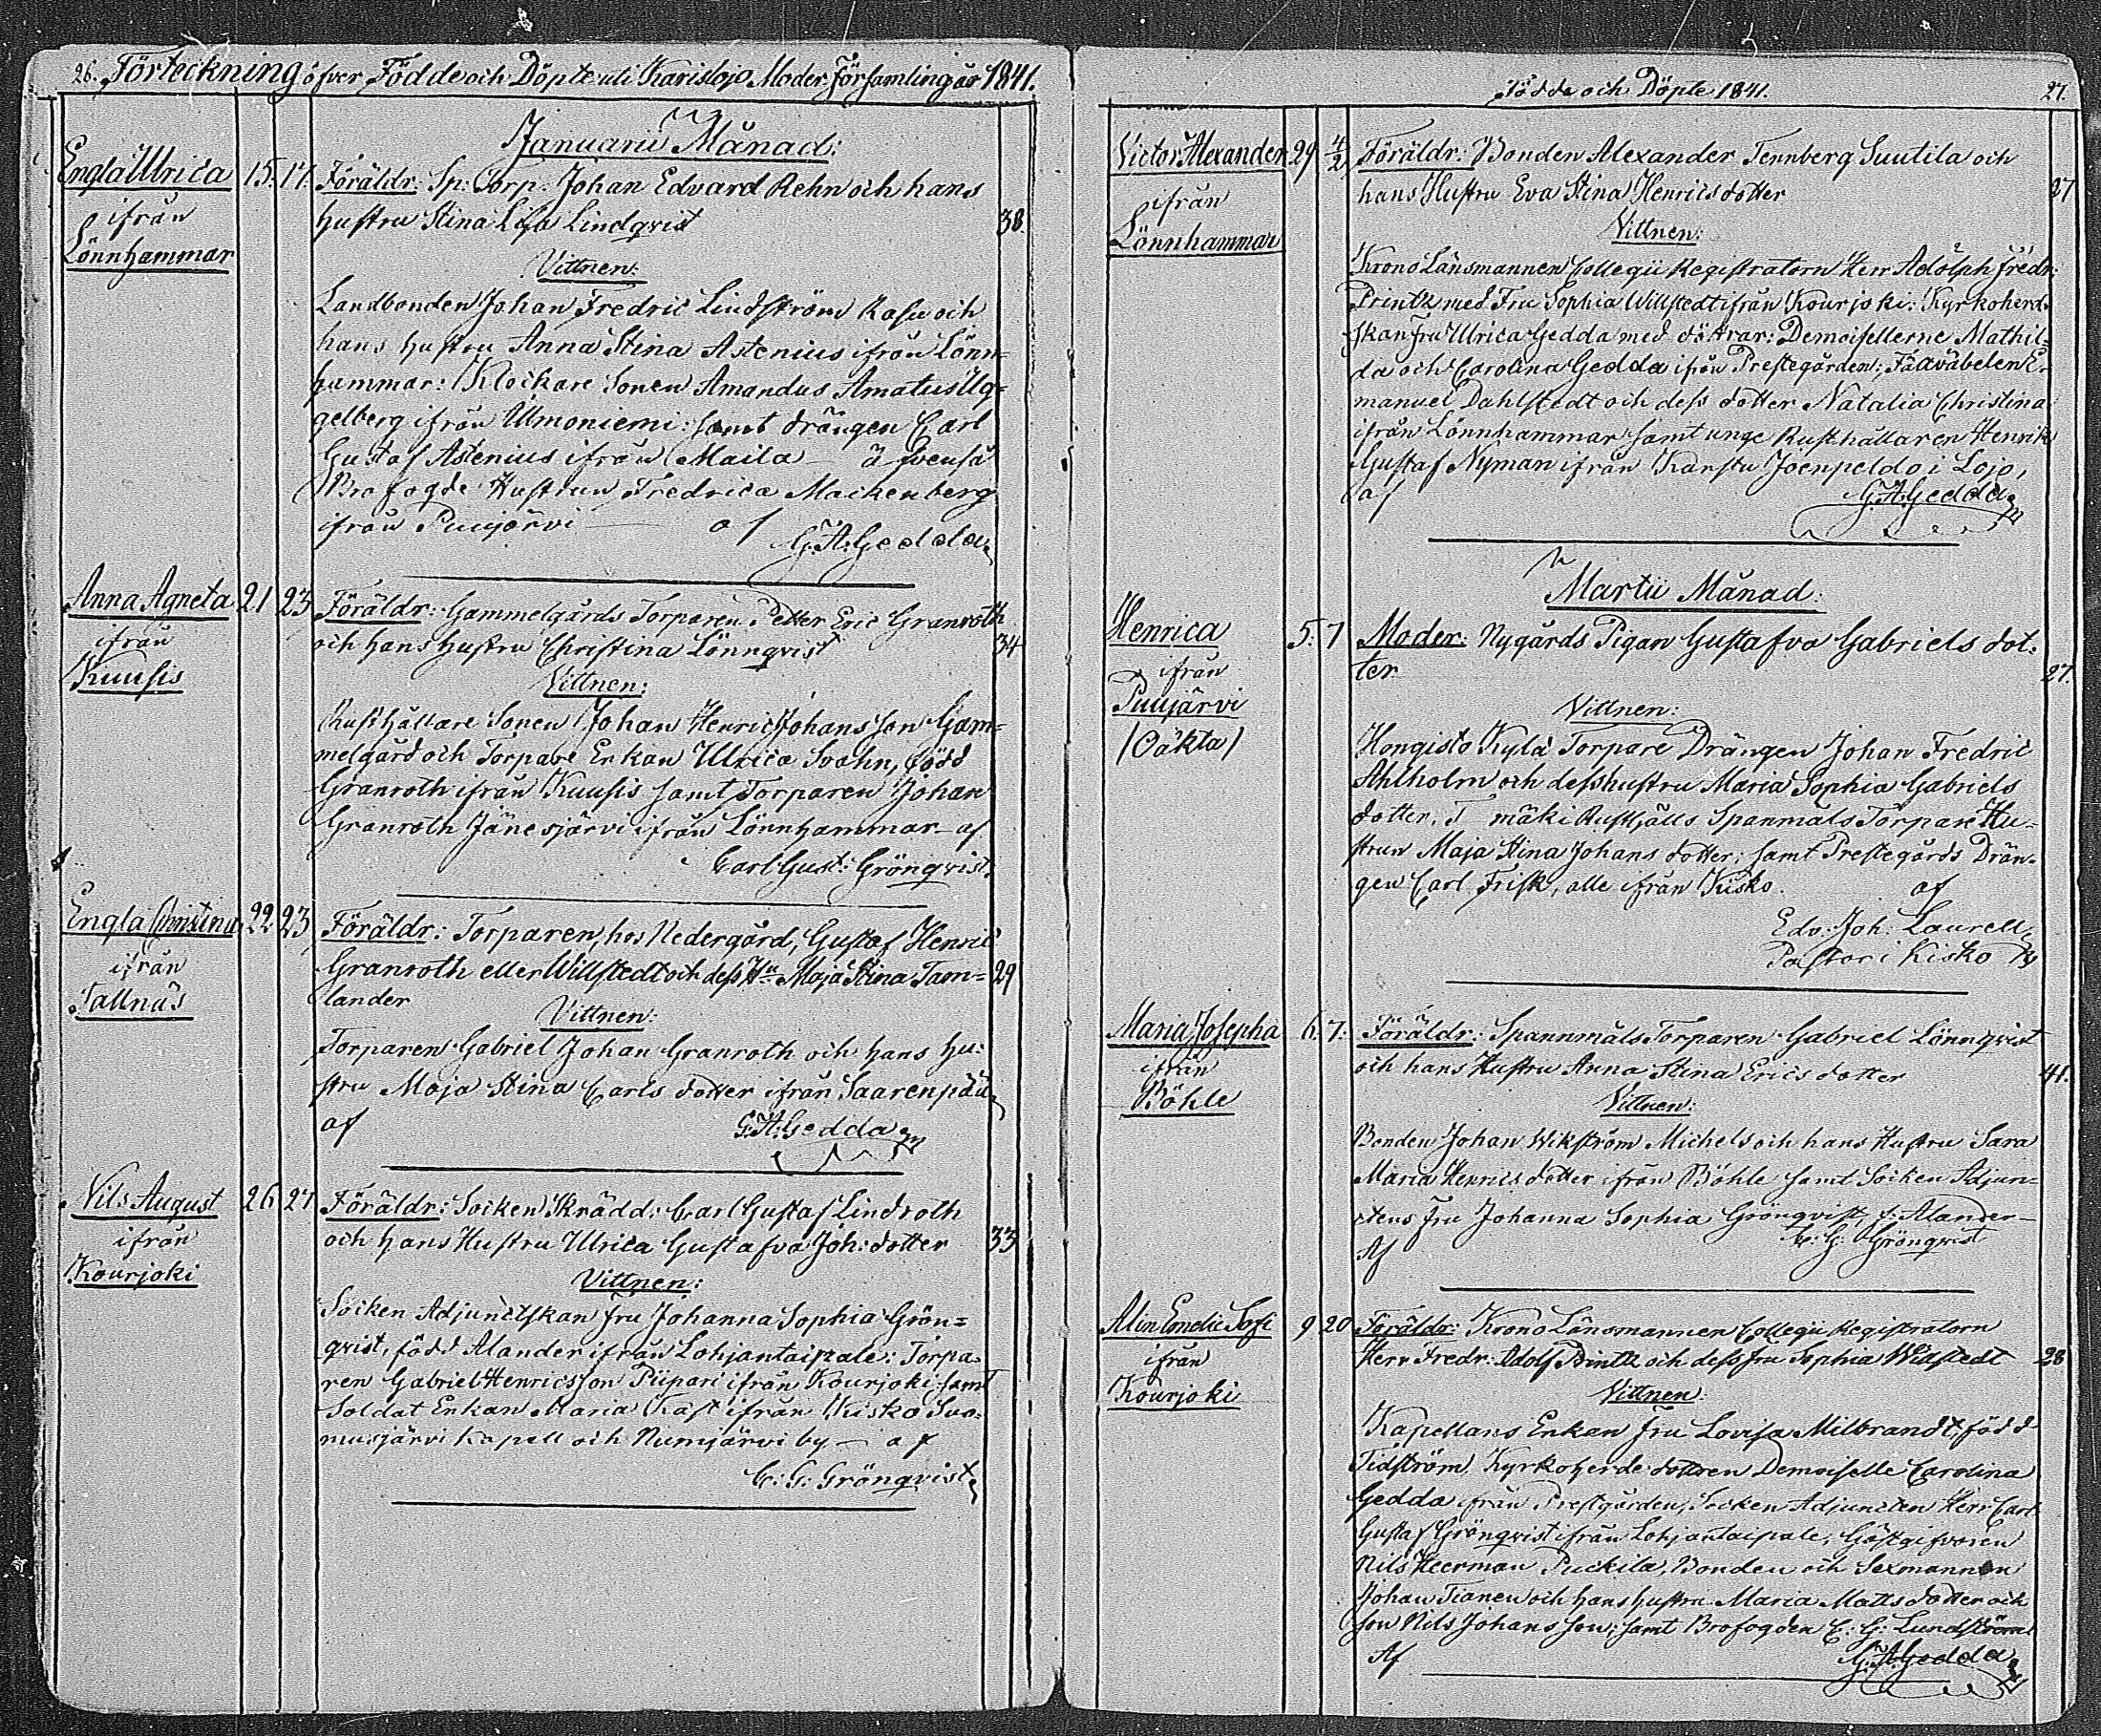 26. Förteckning öfver Födde och Döpte uti Karislojo Moder Församling år 1841.
Januarii Månad:
Engla Ulrica 15. 17. Föräldr: Sp: Torp: Johan Edvard Rehn och hans
ifrån hustru Stina Lisa Lindqvist 38.
Lönnhammar
Vittnen:
Landbonden Johan Fredric Lindström Rasu och
hans hustru Anna Stina Astenius ifrån Lönn=
hammar: Klockare Sonen Amandus Amatus Ug=
gelberg ifrån Ulmoniemi: samt drängen Carl
Gustaf Astenius ifrån Maila — äfvenså
Brofogde Hustrun Fredrica Mackenberg
ifrån Puujärvi — af
G:A:Gedda
Anna Agneta 21 23 Föräldr: Gammelgårds Torparen Petter Eric Granroth
ifrån och hans hustru Christina Lönnqvist 34
Kuusis
Vittnen:
Rusthållare Sonen Johan Henric Johansson Gam=
melgård och Torpare Enkan Ulrica Svahn, född
Granroth ifrån Kuusis samt Torparen Johan
Granroth Jänesjärvi ifrån Lönnhammar — af
Carl Gust: Grönqvist.
Engla Christina 22 23 Föräldr: Torparen, hos Nedergård, Gustaf Henric
ifrån Granroth eller Willstedt och dess Hu Maja Stina Tam= 29
Tallnäs lander
Vittnen:
Torparen Gabriel Johan Granroth och hans hu:
stru Maja Stina Carls dotter ifrån Saarenpää
af G:A:Gedda
Nils August 26 27 Föräldr: Socken Skrädd: Carl Gustaf Lindroth
ifrån och hans Hustru Ulrica Gustafva Joh: dotter 33
Kourjoki
Vittnen:
Socken Adjunctskan fru Johanna Sophia Grön=
qvist, född Alander ifrån Lohjantaipale: Torpa=
ren Gabriel Henricsson Piipari ifrån Kourjoki samt
Soldat Enkan Maria Kast ifrån Kisko Suo=
musjärvi Kapell och Numjärvi by — af
C: G: Grönqvist
Födde och Döpte 1841. 27.
Victor Alexander 29 4/2 Föräldr: Bonden Alexander Tennberg Suutila och
ifrån hans Hustru Eva Stina Henrics dotter 27
Lönnhammar
Vittnen:
Krono Länsmannen Collegii Registratorn Herr Adolph Fredr:
Printz med Fru Sophia Willstedt ifrån Kourjoki: Kyrkoherd=
skan fru Ulrica Gedda med döttrar: Demoisellerne Mathil=
da och Carolina Gedda ifrån Prestegården; E=
manuel Dahlstedt och dess dotter Natalia Christina
ifrån Lönnhammar samt unge Rusthållaren Henrik
Gustaf Nyman ifrån Karstu Joenpeldo i Lojo,
af G:A:Gedda
Martii Månad:
Henrica 5. 7 Moder: Nygårds Pigan Gustafva Gabriels dot=
ifrån ter 27.
Puujärvi
/Oäkta/
Vittnen:
Hongisto Kylä Torpare Drängen Johan Fredric
Ahlholm och dess hustru Maria Sophia Gabriels
dotter, T mäki Rusthålls Spanmåls Torpare Hu=
strun Maja Stina Johans dotter; samt Prestegårds Drän=
gen Carl Frisk, alle ifrån Kisko. af
Edv: Joh: Laurell
Pastor i Kisko
Maria Josepha 6. 7. Föräldr: Spannmåls Torparen Gabriel Lönnqvist
ifrån och hans Hustru Anna Stina Erics dotter 41.
Böhle
Vittnen:
Bonden Johan Wikström Michels och hans Hustru Sara
Maria Henrics dotter ifrån Böhle samt Socken Adjun=
ctens fru Johanna Sophia Grönqvist, f: Alander —
Af C: G: Grönqvist
Alin Emelie Sofi 9 20 Föräldr: Krono Länsmannen Collegii Registratorn
ifrån Herr Fredr: Adolf Printz och dess fru Sophia Willstedt 28
Kourjoki
Vittnen:
Kapellans Enkan fru Lovisa Milbrandt, född
Tidström Kyrkoherde dottren Demoiselle Carolina
Gedda ifrån Prestgården, Socken Adjuncten Herr Carl
Gustaf Grönqvist ifrån Lohjantaipale, Gästgifvaren
Nils Heerman Puckila, Bonden och Sexmannen
Johan Tianen och hans hustru Maria Matts dotter och
son Nils Johansson; samt Brofogden C: G: Lundström
Af G:A:Gedda